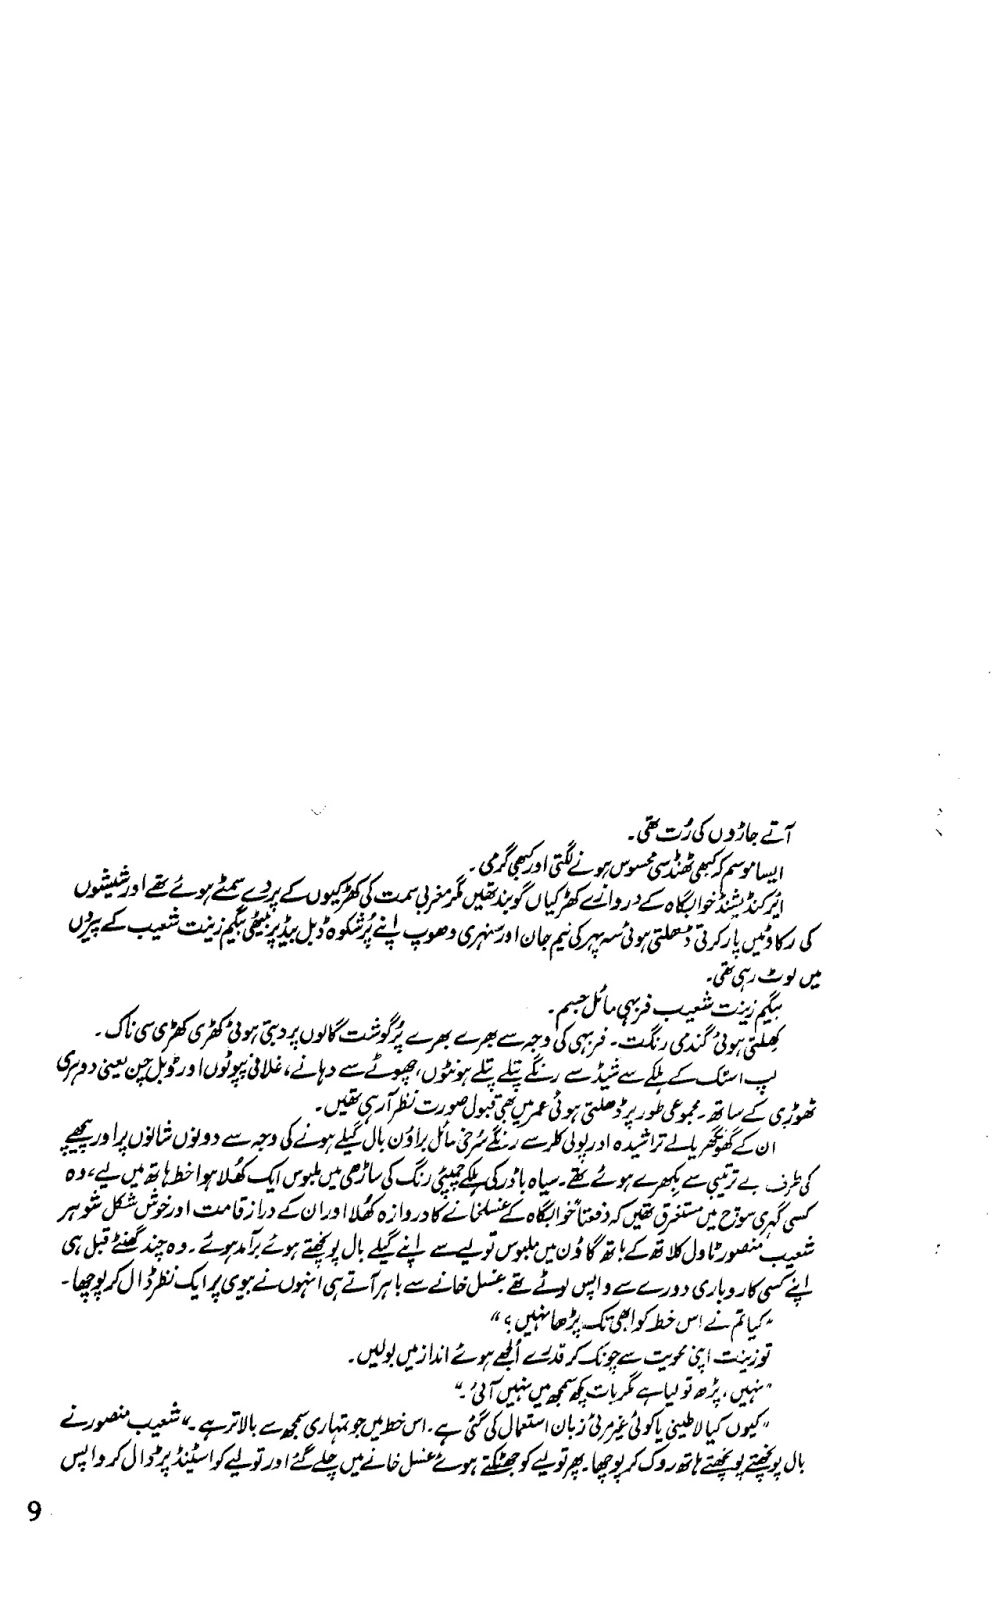 آتے جاڑوں کی رُت تھی۔
ایسا موسم کہ کبھی ٹھنڈ سی محسوس ہونے لگتی اور کبھی گرمی۔
ائیرکنڈیشنڈ خوابگاہ کے دروازے کھڑکیاں گو بند تھیں مگر مغربی سمت کی کھڑکیوں کے پردے سمٹے ہوئے تھے اور شیشوں
کی رکاوٹیں پار کرتی ڈھلتی ہوئی سہ پہر کی نیم جان اور سنہری دھوپ اپنے پُرشکوہ ڈبل بیڈ پر بیٹھی بیگم زینت شعیب کے پیروں
میں لوٹ رہی تھی۔
بیگم زینت شعیب فربہی مائل جسم۔
کھلتی ہوئی گندمی رنگت۔ فربہی کی وجہ سے بھرے بھرے پُرگوشت گالوں پر دبتی ہوئی کھڑی کھڑی سی ناک۔
لپ اسٹک کے ہلکے سے شیڈ سے رنگے پتلے پتلے ہونٹوں، چھوٹے سے دہانے، غلافی پپوٹوں اور ڈبل چن یعنی دوہری
ٹھوڑی کے ساتھ۔ مجموعی طور پر ڈھلتی ہوئی عمر میں بھی قبول صورت نظر آرہی تھیں۔
ان کے گھونگھریالے تراشیدہ اور پولی کلر سے رنگے سُرخی مائل براؤن بال گیلے ہونے کی وجہ سے دونوں شانوں پر اور پیچھے
کی طرف بے ترتیبی سے بکھرے ہوئے تھے۔ سیاہ باڈر کی ہلکے چمپئی رنگ کی ساڑھی میں ملبوس ایک کھُلا ہوا خط ہاتھ میں لیے، وہ
کسی گہری سوچ میں مستغرق تھیں کہ دفعتاً خوابگاہ کے غسلخانے کا دروازہ کھُلا اور ان کے دراز قامت اور خوش شکل شوہر
شعیب منصور ٹاول کلاتھ کے باتھ گاؤن میں ملبوس تولیے سے اپنے گیلے بال پونچھتے ہوئے برآمد ہوئے۔ وہ چند گھنٹے قبل ہی
اپنے کسی کاروباری دورے سے واپس لوٹے تھے۔ غسل خانے سے باہر آتے ہی انہوں نے بیوی پر ایک نظر ڈال کر پوچھا۔
"کیا تم نے اس خط کو ابھی تک پڑھا نہیں؟"
تو زینت اپنی محویت سے چونک کر قدرے اُلجھے ہوئے انداز میں بولیں۔
"نہیں، پڑھ تو لیا ہے مگر بات کچھ سمجھ میں نہیں آئی۔"
"کیوں کیا لاطینی یا کوئی غیر مرئی زبان استعمال کی گئی ہے۔ اس خط میں جو تمہاری سمجھ سے بالاتر ہے۔" شعیب منصور نے
بال پونچھتے پونچھتے ہاتھ روک کر پوچھا۔ پھر تولیے کو جھٹکتے ہوئے غسل خانے میں چلے گئے اور تولیے کو اسٹینڈ پر ڈال کر واپس
9